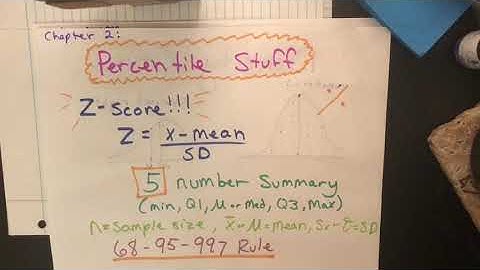 Chapter 2:
Percentile Stuff
Z-Score!!!
Z = x-mean
SD
5 number Summary
(min, Q1, M or Med, Q3, Max)
n=Sample size, x̄ or M=mean, Sx or σ=SD
68-95-997 Rule